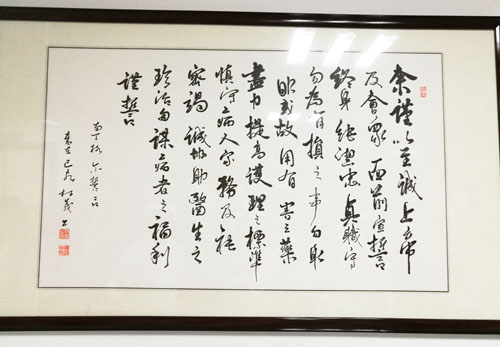 余謹以至誠上帝
及會眾面前宣誓
終身純潔忠貞職守
勿為有損之事勿取
服或故用有害之藥
盡力提高護理之標準
慎守病人家務及秘
密竭誠協助醫生之
診治勿謀病者之福利
謹誓
南丁格尔誓言